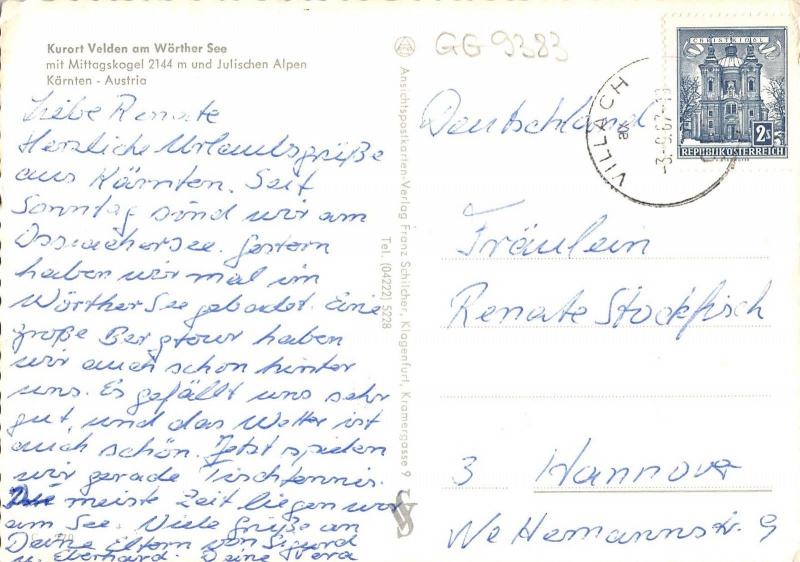 Kurort Velden am Wörther See
mit Mittagskogel 2144 m und Julischen Alpen
Kärnten - Austria
Liebe Renate
Herzliche Urlaubsgrüße
aus Kärnten. Seit
Sonntag sind wir am
Ossiachersee. Gestern
haben wir mal im
Wörther See gebadet. Eine
große Bergtour haben
wir auch schon hinter
uns. Es gefällt uns sehr
gut, und das Wetter ist
auch schön. Jetzt spielen
wir gerade Tischtennis.
Die meiste Zeit liegen wir
am See. Viele Grüße an
Deine Eltern von Sigurd
u. Eberhard. Deine Vera
Ansichtspostkarten-Verlag Franz Schilcher, Klagenfurt, Kramergasse 9
Tel. (04222) 5228
GG 9383
VILLACH
-3.-9.67-13
CHRISTKINDL
2S
REPUBLIK ÖSTERREICH
Deutschland
Fräulein
Renate Stockfisch
3 Hannover
9